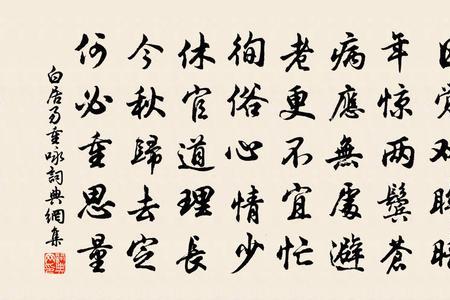 年惊两鬓蒼
病應無處避
老更不宜忙
徇俗心情少
休官道理長
今秋歸去定
何必重思量
白居易重咏詞典網集